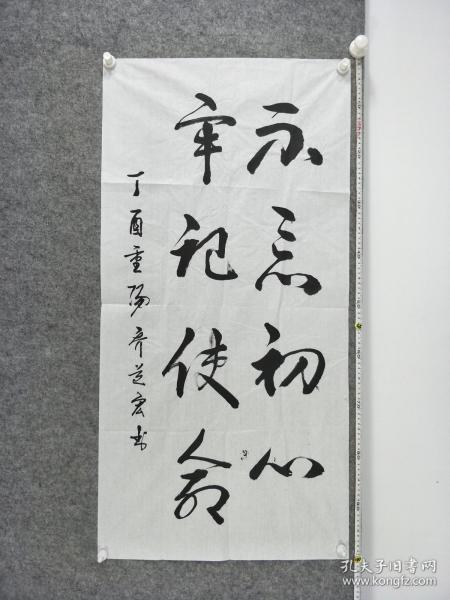 不忘初心
牢记使命
丁酉重阳齐芝宏书
孔夫子旧书网
www.kongfz.com